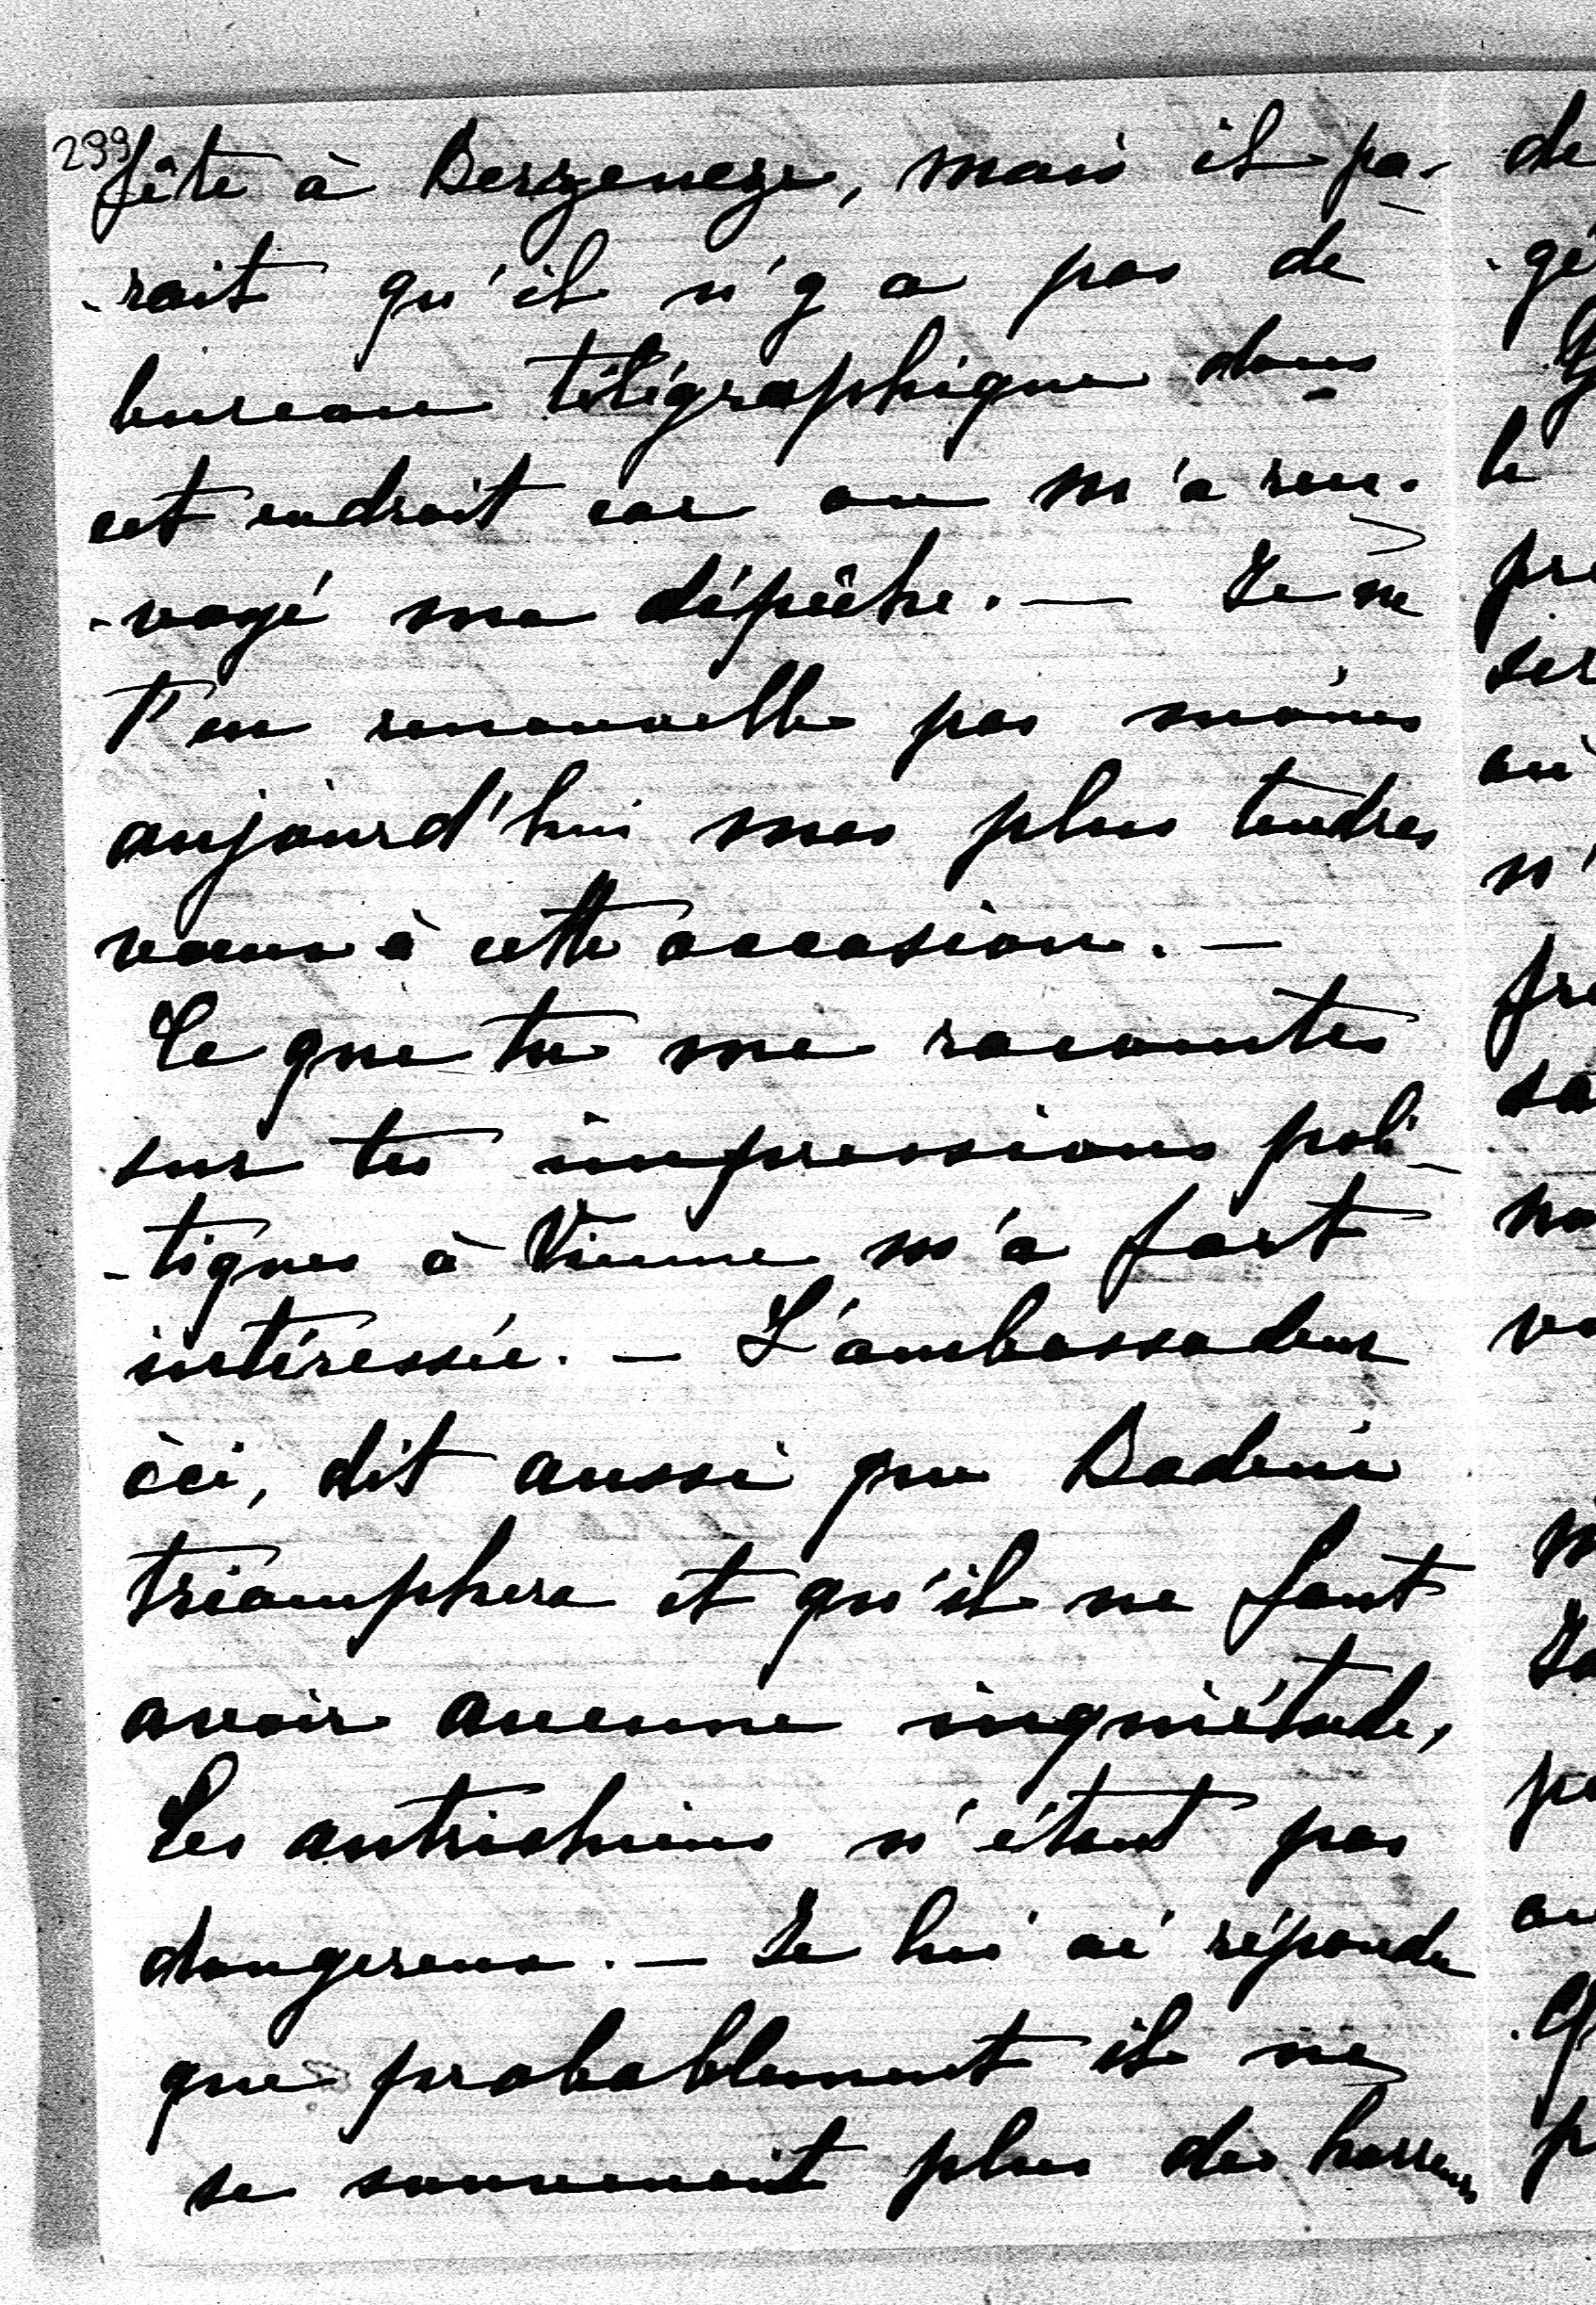 299
fête à Berzeneze, mais il pa-
-rait qu'il n'y a pas de
bureau télégraphique dans
cet endroit car on m'a ren-
-voyé ma dépêche. — Je ne
t'en renouvelle pas moins
aujourd'hui mes plus tendres
vœux à cette occasion. —
Ce que tu me racontes
sur tes impressions poli-
-tiques à Vienne m'a fort
intéressée. — L'ambassadeur
ici, dit aussi que Badeni
triomphera et qu'il ne faut
avoir aucune inquiétude,
Les autrichiens n'étant pas
dangereux. — Je lui ai répondu
que probablement il ne
se souvenait plus des horreurs